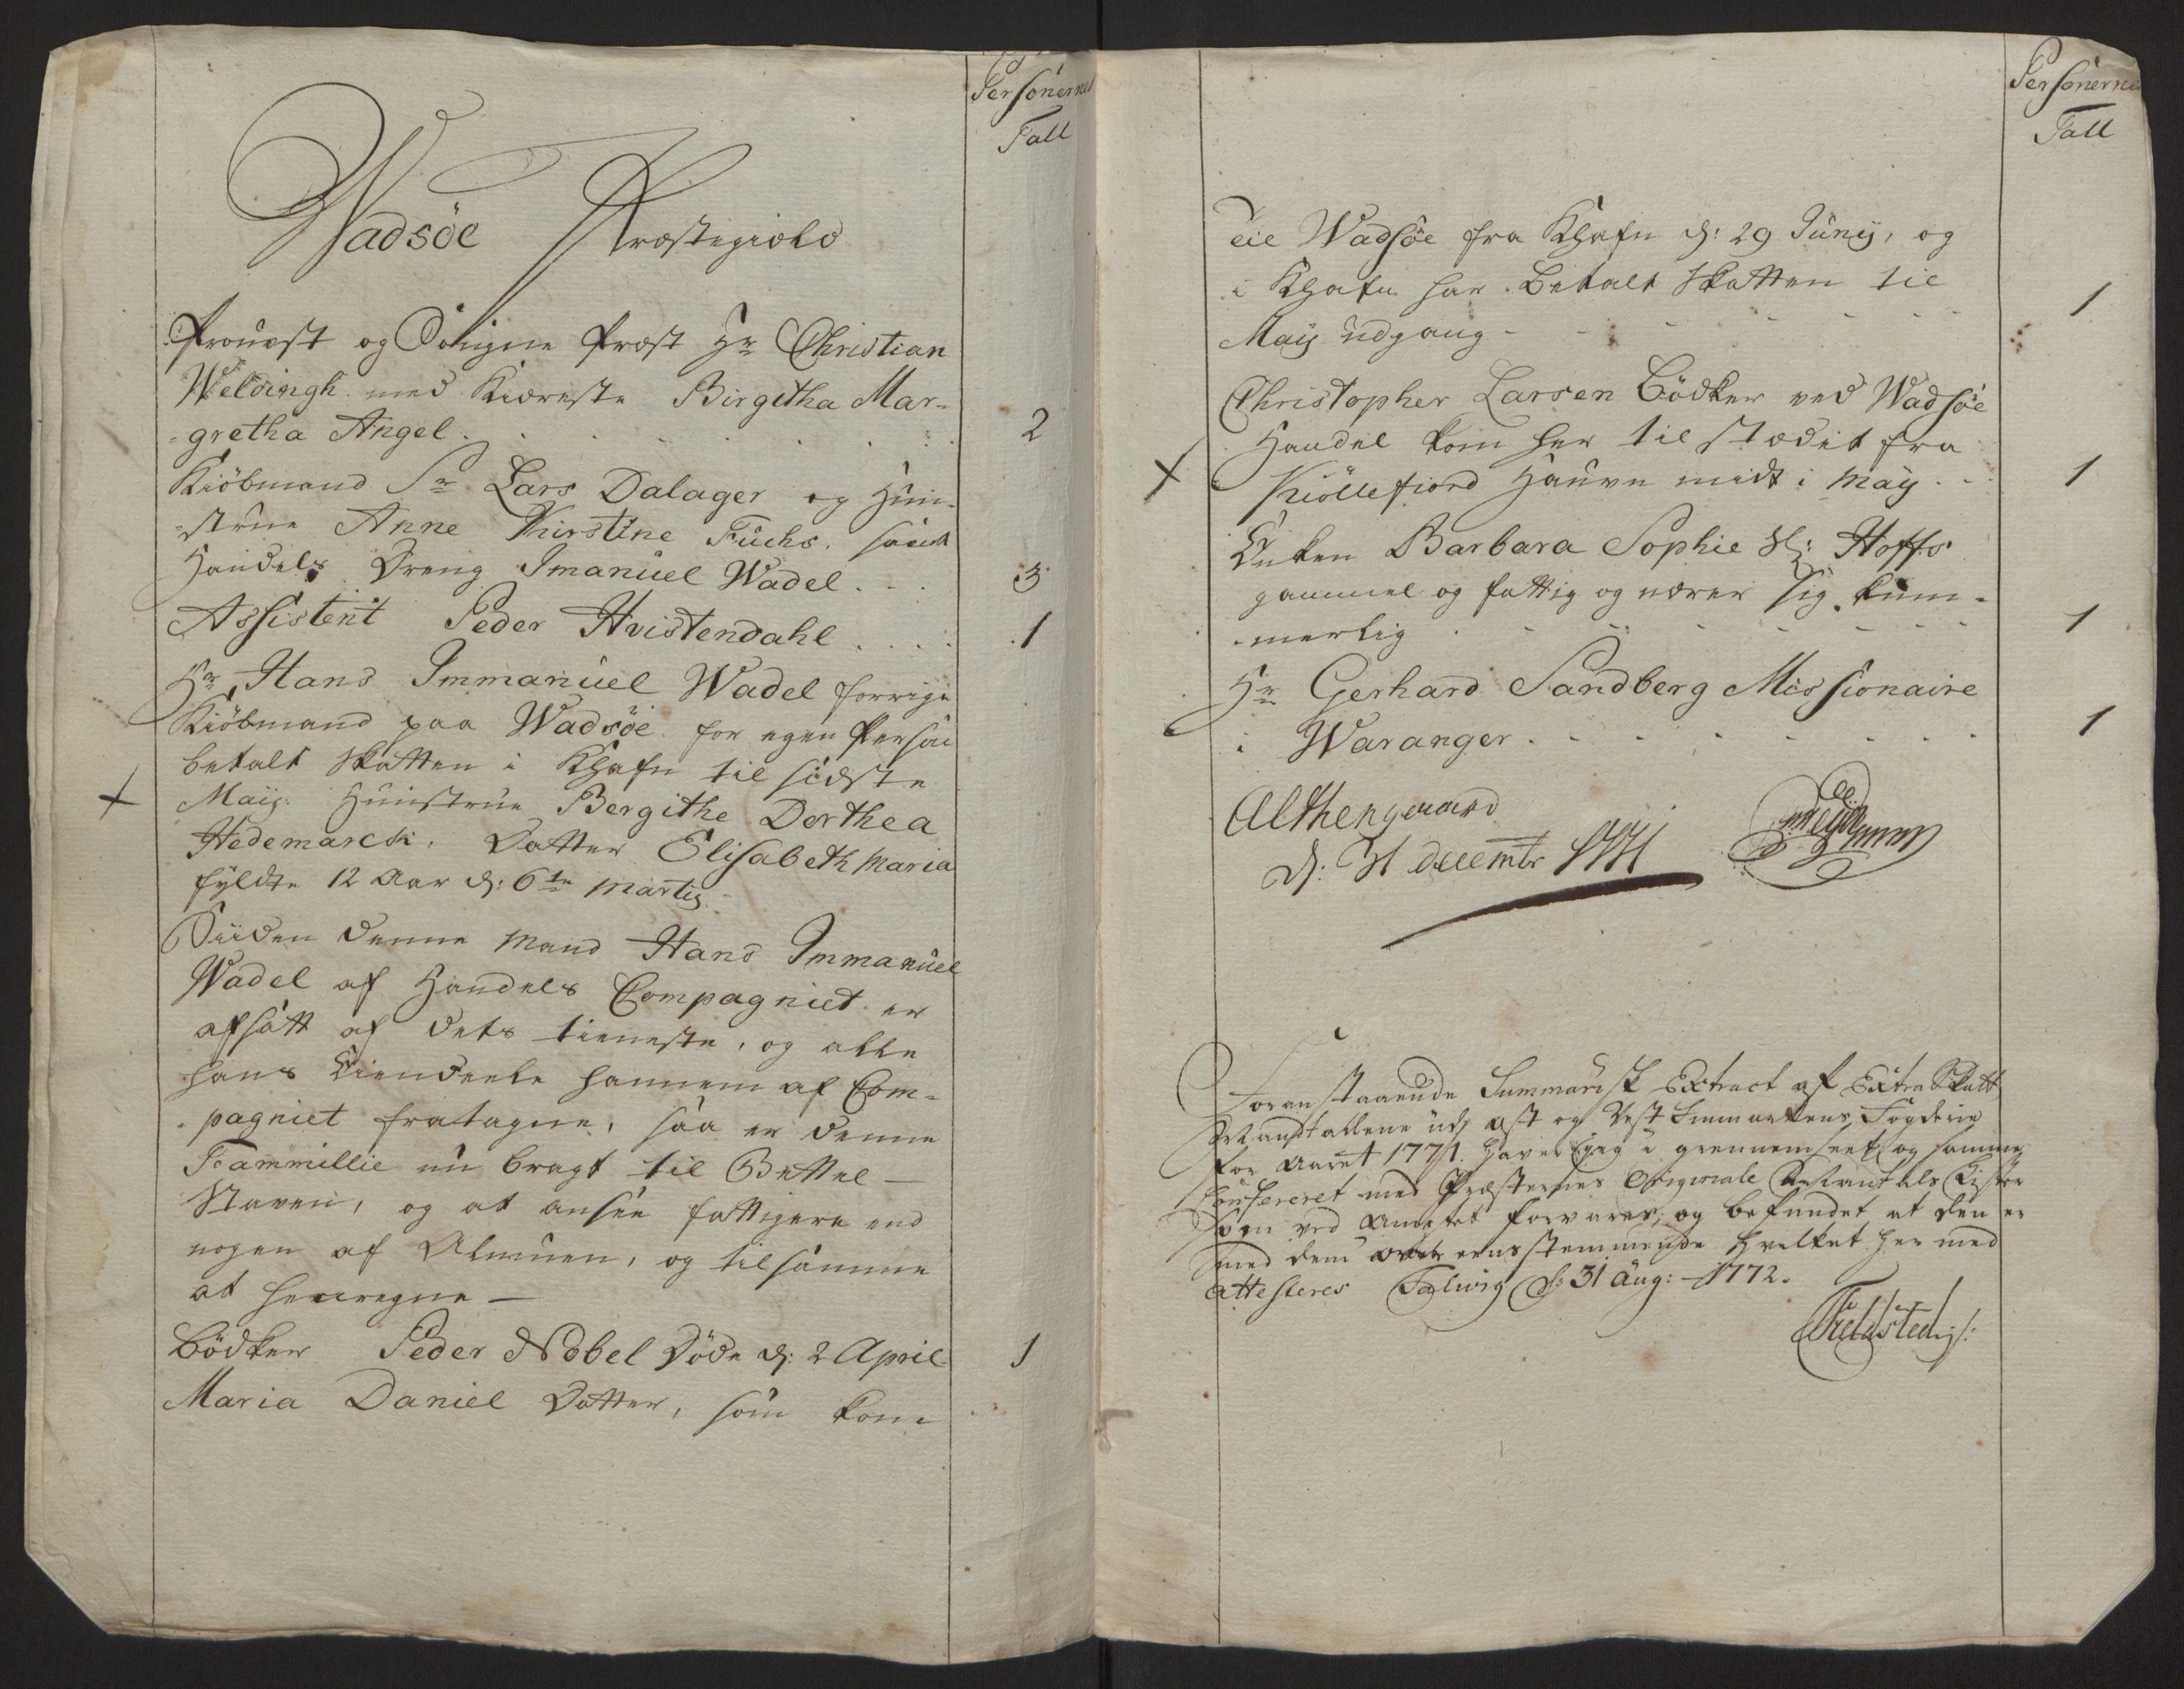 Personernes
Tall
Wadsöe Præstegield
Proust og Sogne Præst Hr Christian
Weldingh med Kiæreste Birgitha Mar-
=gretha Angel . . . . . . . 2
Kiöbmand Sr Lars Dalager og Huu-
=strue Anne Kirstine Fuchs. samt
Handels Dreng Imanuel Wadel . . . 3
Assistent Peder Hvistendahl . . . . 1
Hr Hans Immanuel Wadel forrige
Kiöbmand paa Wadsöe for egen Person
betalt Skatten i Khafn til sidste
Maij. Huustrue Bergithe Dorthea
Hedemarck, Datter Elisabeth Maria
fyldte 12 Aar d: 6te Martij -
Siiden denne Mand Hans Immanuel
Wadel af Handels Compagniet er
afsatt af dets tieneste, og alle
hans Eiendeele hannem af Com-
-pagniet fratagne, saa er denne
Fammillie nu bragt til Bettel-
Staven, og at ansee fattigere end
nogen af Almuen, og tilsamme
at henregne -
Bödker Peder Nobel Döde d: 2 April 1
Maria Daniel Datter, som kom
Personernes
Tall
til Wadsöe fra Khafn d: 29 Junij, og
i Khafn har betalt Skatten til
Maij udgang - - - - - - 1
Christopher Larsen Bödker ved Wadsöe
Handel kom her til stædet fra
Kiöllefiord Hauvn midt i Maij . . . 1
Enken Barbara Sophie Sl: Hoffs
gammel og fattig og nærer sig kum-
-merlig . - - - - - - 1
Hr Gerhard Sandberg Missionaire
i Waranger . . . . . . . 1
Althengaard
d: 31 decembr 1771
Foranstaaende Summarisk Extract af Extra Skatt
Mandtallene udj Øst og Vest Finmarkens Fogderie
for Aaret 1771. haver jeg igiennemseet og samme
Confereret med Præsternes Originale Mandtals Lister
som ved Amtet forvares, og befundet at den er
med dem overeensstemmende hvilket her med
attesteres Talwig d: 31 Aug: 1772.